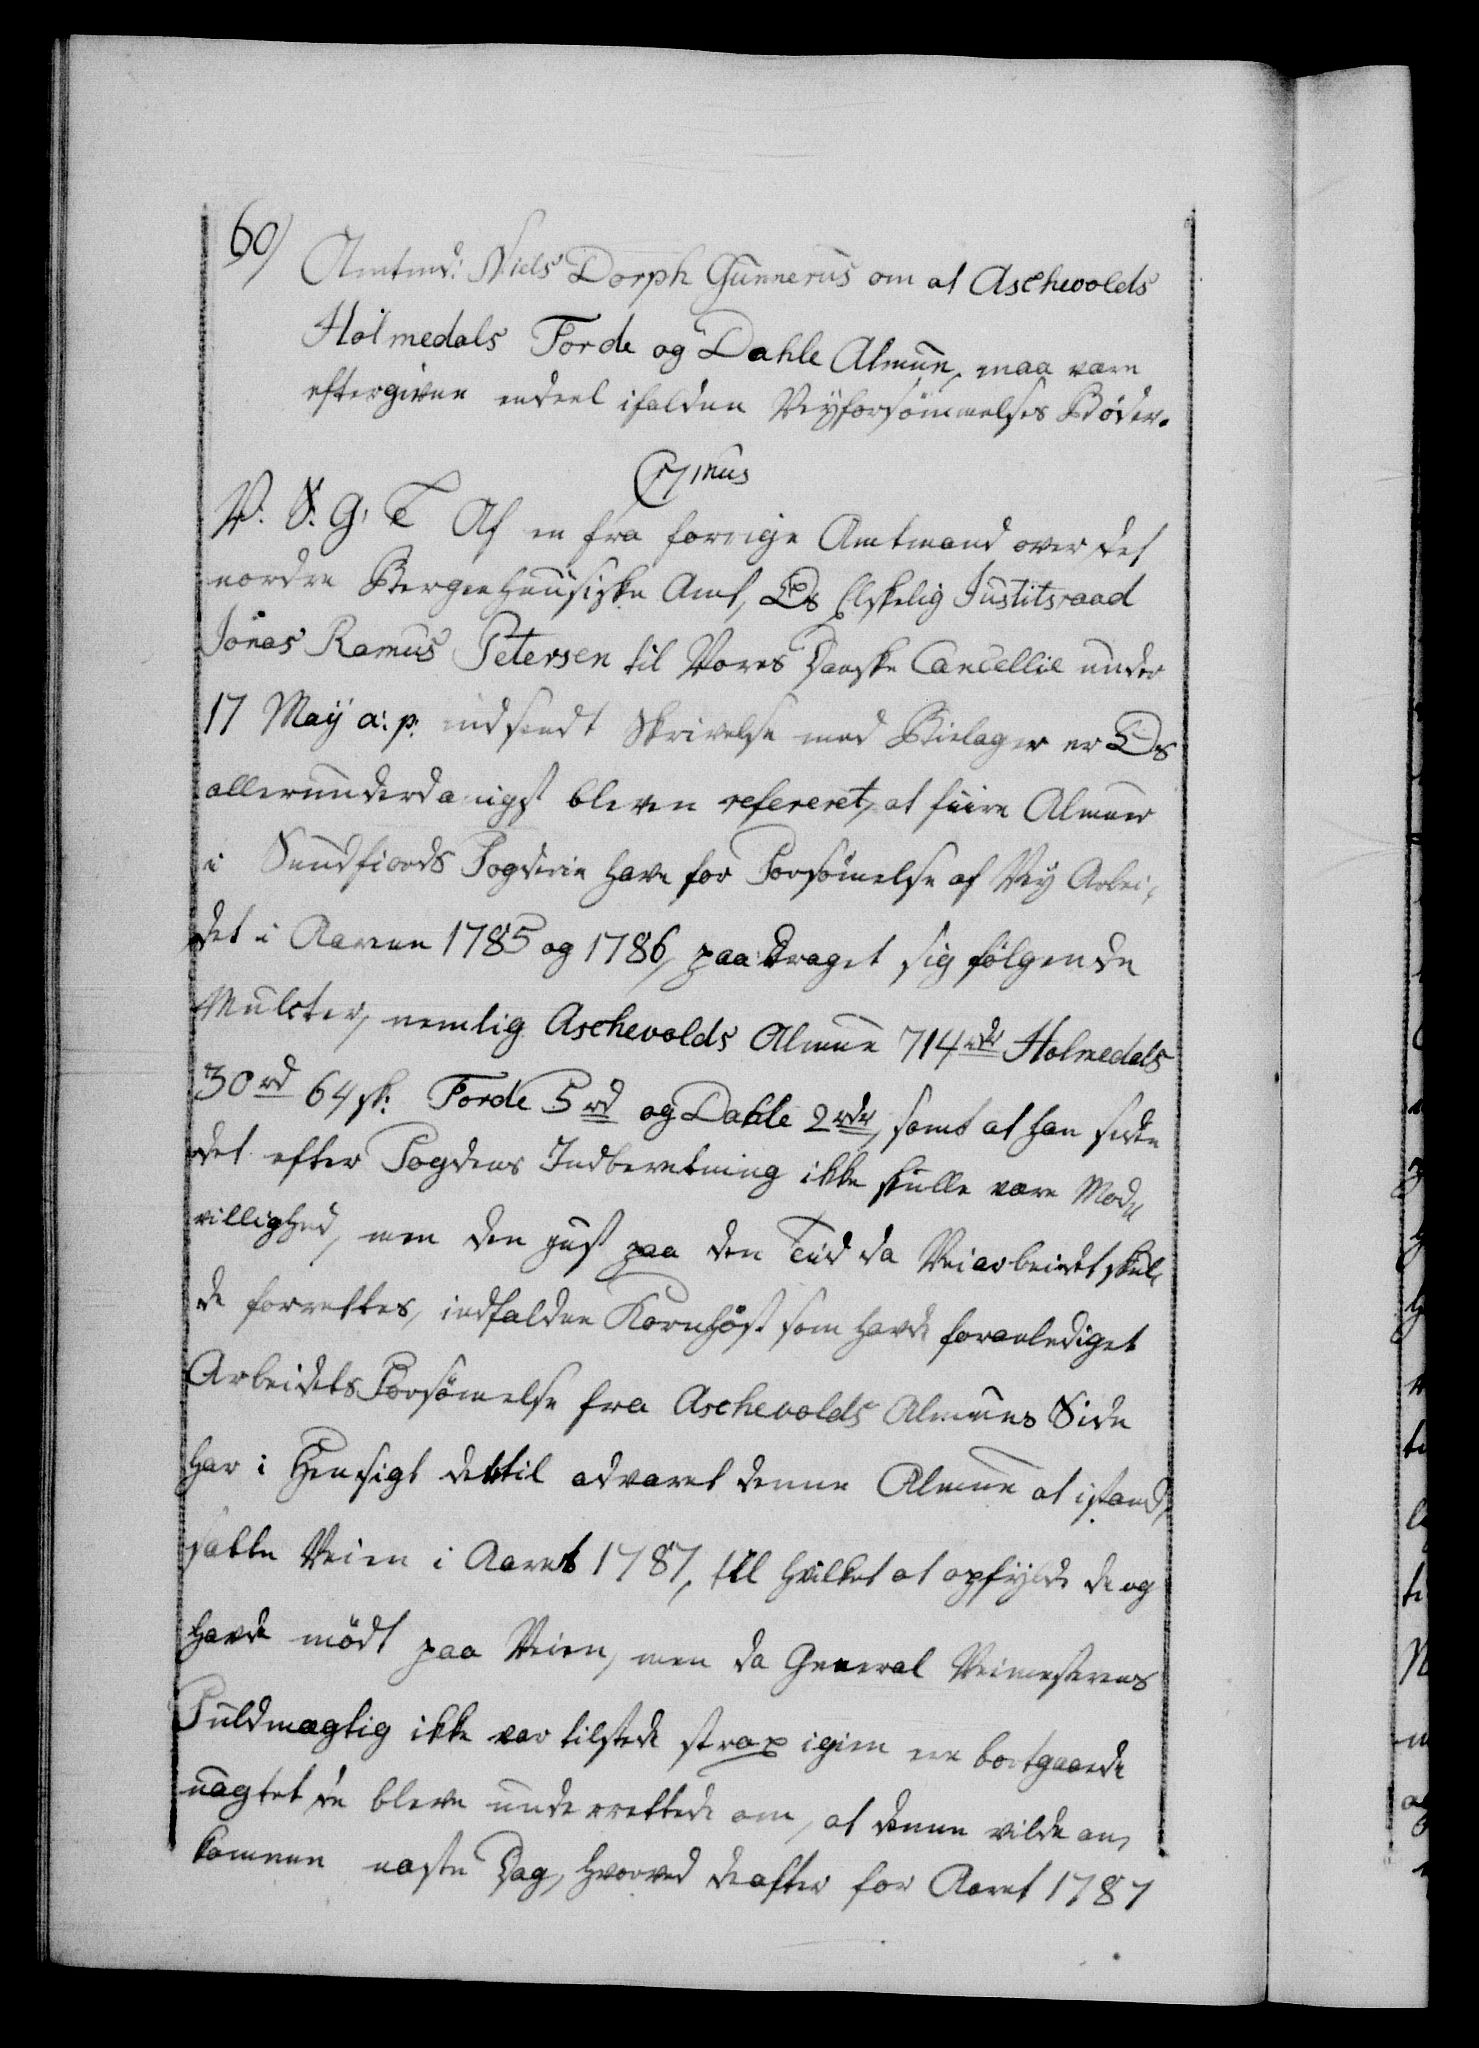 60)
Amtmd: Niels Dorph Gunnerus om at Aschevolds
Holmedals Forde og Dahle Almue, maa være
eftergiven endeel ifalden Veyforsömmelses Bøder.
C7mus
V. S. G. T Af en fra forrige Amtmand over det
nordre Bergenhuusiske Amt, Os Elskelig Justitsraad
Jonas Ramus Petersen til Vores Danske Cancellie under
17 Maij a: p: indsendt Skrivelse med Bielager er Os
allerunderdanigst bleven refereret, at fiire Almuer
i Sundfiords Fogderie have for Forsömelse af Vey Arbei-
det i Aarene 1785 og 1786, paadraget sig følgende
Mulcter, nemlig Aschevolds Almue 714 rdr Holmedals
30 rd 64 sk: Forde 5 rd og Dahle 2 rdr, samt at han siden
det efter Fogdens Indberetning ikke skulle være Mod-
villighed, men den just paa den Tiid da Veiarbeidet skul-
de forrettes, indfaldne Kornhøst som havde foranlediget
Arbeidets Forsömelse fra Aschevolds Almues Side
har i Hensigt dertil advaret denne Almue at istand-
sætte Veien i Aaret 1787, til hvilket at opfylde de og
havde mödt paa Veien, men da General Veimesterens
Fuldmægtig ikke var tilstede strax igien ere bortgaaede
uagtet de bleve underrettede om, at denne vilde an-
komme næste Dag, hvorved de atter for Aaret 1787